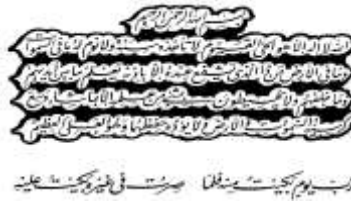 بسم الله الرحمن الرحيم
الله لا اله الا هو الحي القيوم لا تأخذه سنة ولا نوم له ما في السموات
وما في الارض من ذا الذي يشفع عنده الا باذنه يعلم ما بين ايديهم
وما خلفهم ولا يحيطون بشيء من علمه الا بما شاء وسع
كرسيه السموات والارض ولا يؤده حفظهما وهو العلي العظيم
رب يوم بكيت منه فلما صرت في غيره بكيت عليه